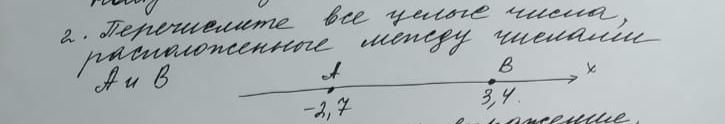 2. Перечислите все целые числа,
расположенные между числами
А и В
А В х
-2,7 3,4